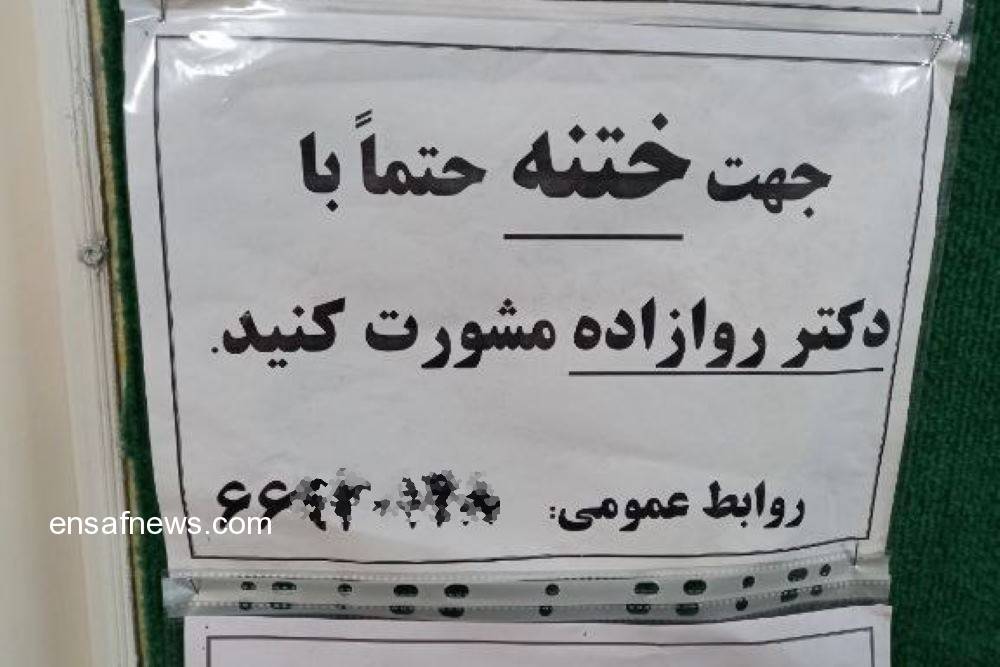 جهت ختنه حتماً با
دکتر روازاده مشورت کنید.
روابط عمومی:
ensafnews.com